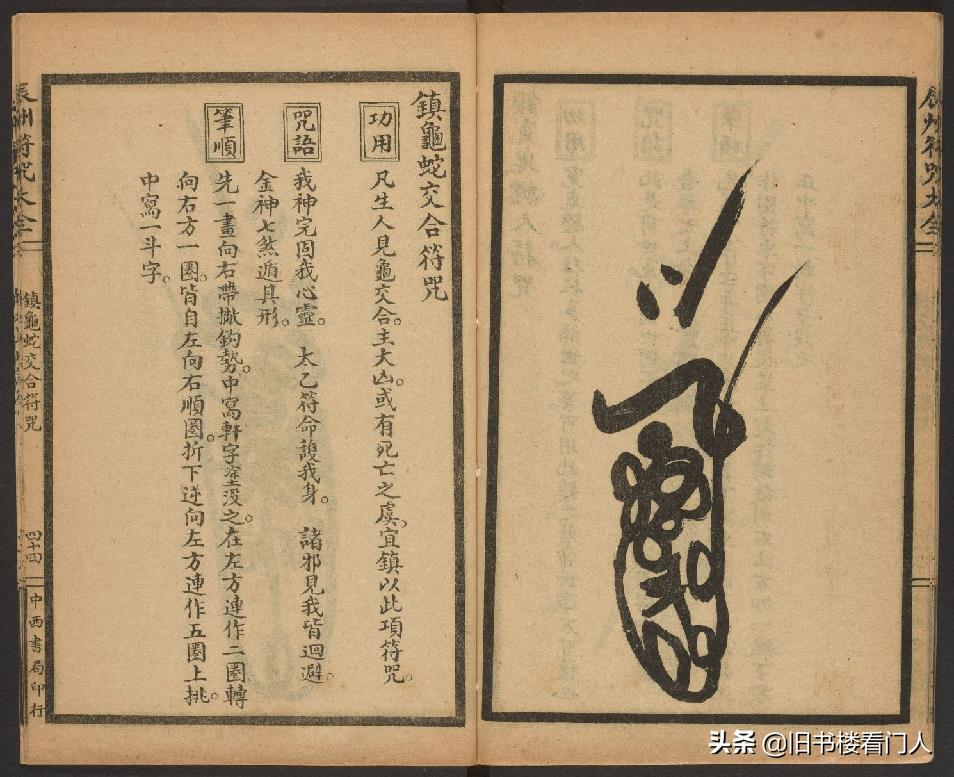 鎮龜蛇交合符咒
功用
凡生人見龜交合。主大凶。或有死亡之虞、宜鎮以此項符咒。
咒語
我神完固我心靈。 太乙符命護我身。 諸邪見我皆迴避。
金神七煞遁具形。
筆順
先一畫向右帶撇鈎勢。中寫軒字塗沒之。在左方連作二圈轉
向右方一圈。皆自左向右順圈。折下逆向左方連作五圈上挑。
中寫一斗字。
辰州符咒大全
鎮龜蛇交合符咒
四十四
中西書局印行
辰州符咒大全
头条 @旧书楼看门人